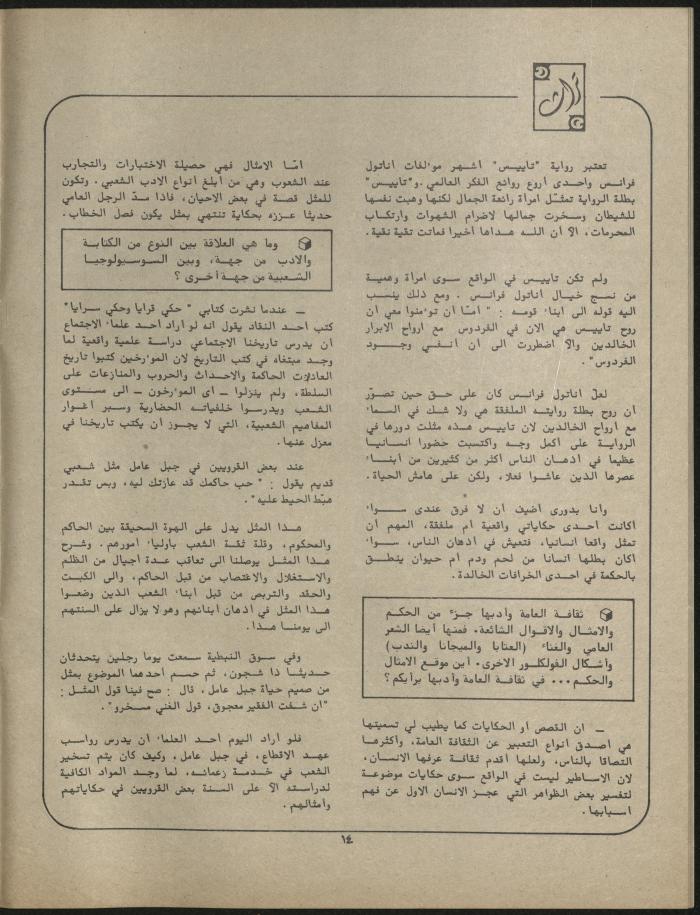 تراث
تعتبر رواية "تاييس" اشهر موءلفات اناتول
فرانس واحدى أروع روائع الفكر العالمي . و"تاييس"
بطلة الرواية تمثّل امرأة رائعة الجمال لكنها وهبت نفسها
للشيطان وسخرت جمالها لاضرام الشهوات وارتكاب
المحرمات ، الاّ أن اللـه هـداها أخيرا فماتت تقية نقية .
ولم تكن تاييس في الواقع سوى امرأة وهمية
من نسج خيـال أناتول فرانس . ومع ذلك ينسب
اليه قوله الى ابناء قومـه : " أمـّا أن توءمنوا معي أن
روح تاييس هي الان في الفردوس مع ارواح الابرار
الخالدين والاّ اضطررت الى أن أنـفـي وجــود
الفردوس" .
لعلّ اناتول فرانس كان على حـق حين تصوّر
أن روح بطلة روايتـه الملفقة هي ولا شـك في السمـاء
مع أرواح الخالدين لان تاييـس هـذه مثلت دورها في
الروايـة على أكمل وجـه واكتسبت حضورا انسـانيـا
عظيما في أذهـان الناس أكثر من كثيرين من أبنــاء
عصرها الذين عاشـوا فعلا ، ولكن على هامش الحياة .
وأنا بدورى أضيف أن لا فرق عندى ســواء
أكانت احدى حكاياتي واقعية أم ملفقة ، المهم أن
تمثل واقعا انسانيا ، فتعيش في أذهان الناس ، سـواء
أكان بطلها انسانا من لحم ودم أم حيوان ينطـق
بالحكمة في احدى الخرافات الخالدة .
ثقافـة العامة وأدبها جـزء من الحكـم
والامثـال والاقـوال الشائعة. فمنها أيضا الشعر
العامي والغناء (العتابا والميجانا والندب)
وأشكال الفولكلـور الاخرى. أين موقـع الامثال
والحكم... في ثقـافـة العامة وأدبها برأيكم ؟
ــ ان القصص أو الحكايات كما يطيب لي تسميتها
هي أصـدق أنواع التعبير عن الثقافة العامة ، وأكثرهـا
التصاقا بالناس ، ولعلها أقدم ثقافـة عرفها الانسـان ،
لان الاسـاطير ليست في الواقع سـوى حكايات موضوعـة
لتفسير بعض الظواهر التي عجـز الانسان الاول عن فهم
أسبابها .
أمـّا الامثال فهي حصيلة الاختبارات والتجارب
عند الشعوب وهي من أبلغ أنواع الادب الشعبي . وتكون
للمثل قصة في بعض الاحيان ، فاذا سـدّ الرجل العامي
حديثا عـززه بحكاية تنتهي بمثل يكون فصل الخطاب .
وما هي العلاقة بين النوع من الكتابـة
والادب من جهـة، وبين السـوسيـولوجيـا
الشـعبية من جهـة أخـرى ؟
ــ عندما نشرت كتابي " حكي قرايا وحكي سـرايا"
كتب احـد النقاد يقول انه لو أراد أحـد علماء الاجتماع
أن يدرس تاريخنا الاجتماعي دراسـة علمية واقعية لما
وجـد مبتغاه في كتب التاريخ لان الموءرخين كتبوا تاريخ
العائلات الحاكمة والاحـداث والحروب والمنازعات على
السلطة ، ولم ينزلـوا ــ أى الموءرخون ــ الى مسـتوى
الشعب ويدرسـوا خلفياتـه الحضارية وسـبر أغـوار
المفاهيم الشعبية ، التي لا يجـوز أن يكتب تاريخنا في
معزل عنها .
عند بعض القرويين في جبل عامل مثل شـعبي
قديم يقول : " حب حاكمك قد عازتك ليه ، وبس تقـدر
هبّط الحيط عليه " .
هـذا المثل يدل على الهوة السحيقة بين الحاكم
والمحكوم ، وقلة ثقـة الشعب بأولياء أمورهم . وشـرح
هـذا المثـل يوصلنا الى تعاقب عـدة أجيال من الظلم
والاسـتغلال والاغتصاب من قبل الحاكم ، والى الكبـت
والحقد والتربص من قبل ابناء الشعب الذين وضعـوا
هـذا المثل في أذهان أبنائهم وهو لا يزال على السنتهم
الى يومنـا هـذا .
وفي سـوق النبطية سـمعت يوما رجلـين يتحدثان
حـديثـا ذا شجون ، ثم حسـم أحدهما الموضوع بمثل
من صميم حياة جبل عامل ، قال : صح فينا قول المثـل :
"ان شـفت الفقير معجوق ، قول الغني مسـخرو" .
فلو أراد اليوم أحـد العلماء أن يدرس رواسـب
عهـد الاقطاع ، في جبل عامل ، وكيف كان يتم تسخير
الشعب في خـدمـة زعمائـه ، لما وجـد المواد الكافية
لدراسـته الاّ على السـنة بعض القرويين في حكاياتهم
وأمثالهم .
١٤